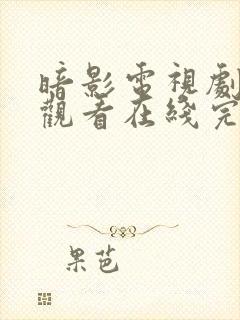 暗影電視劇
觀看在綫完
果芭